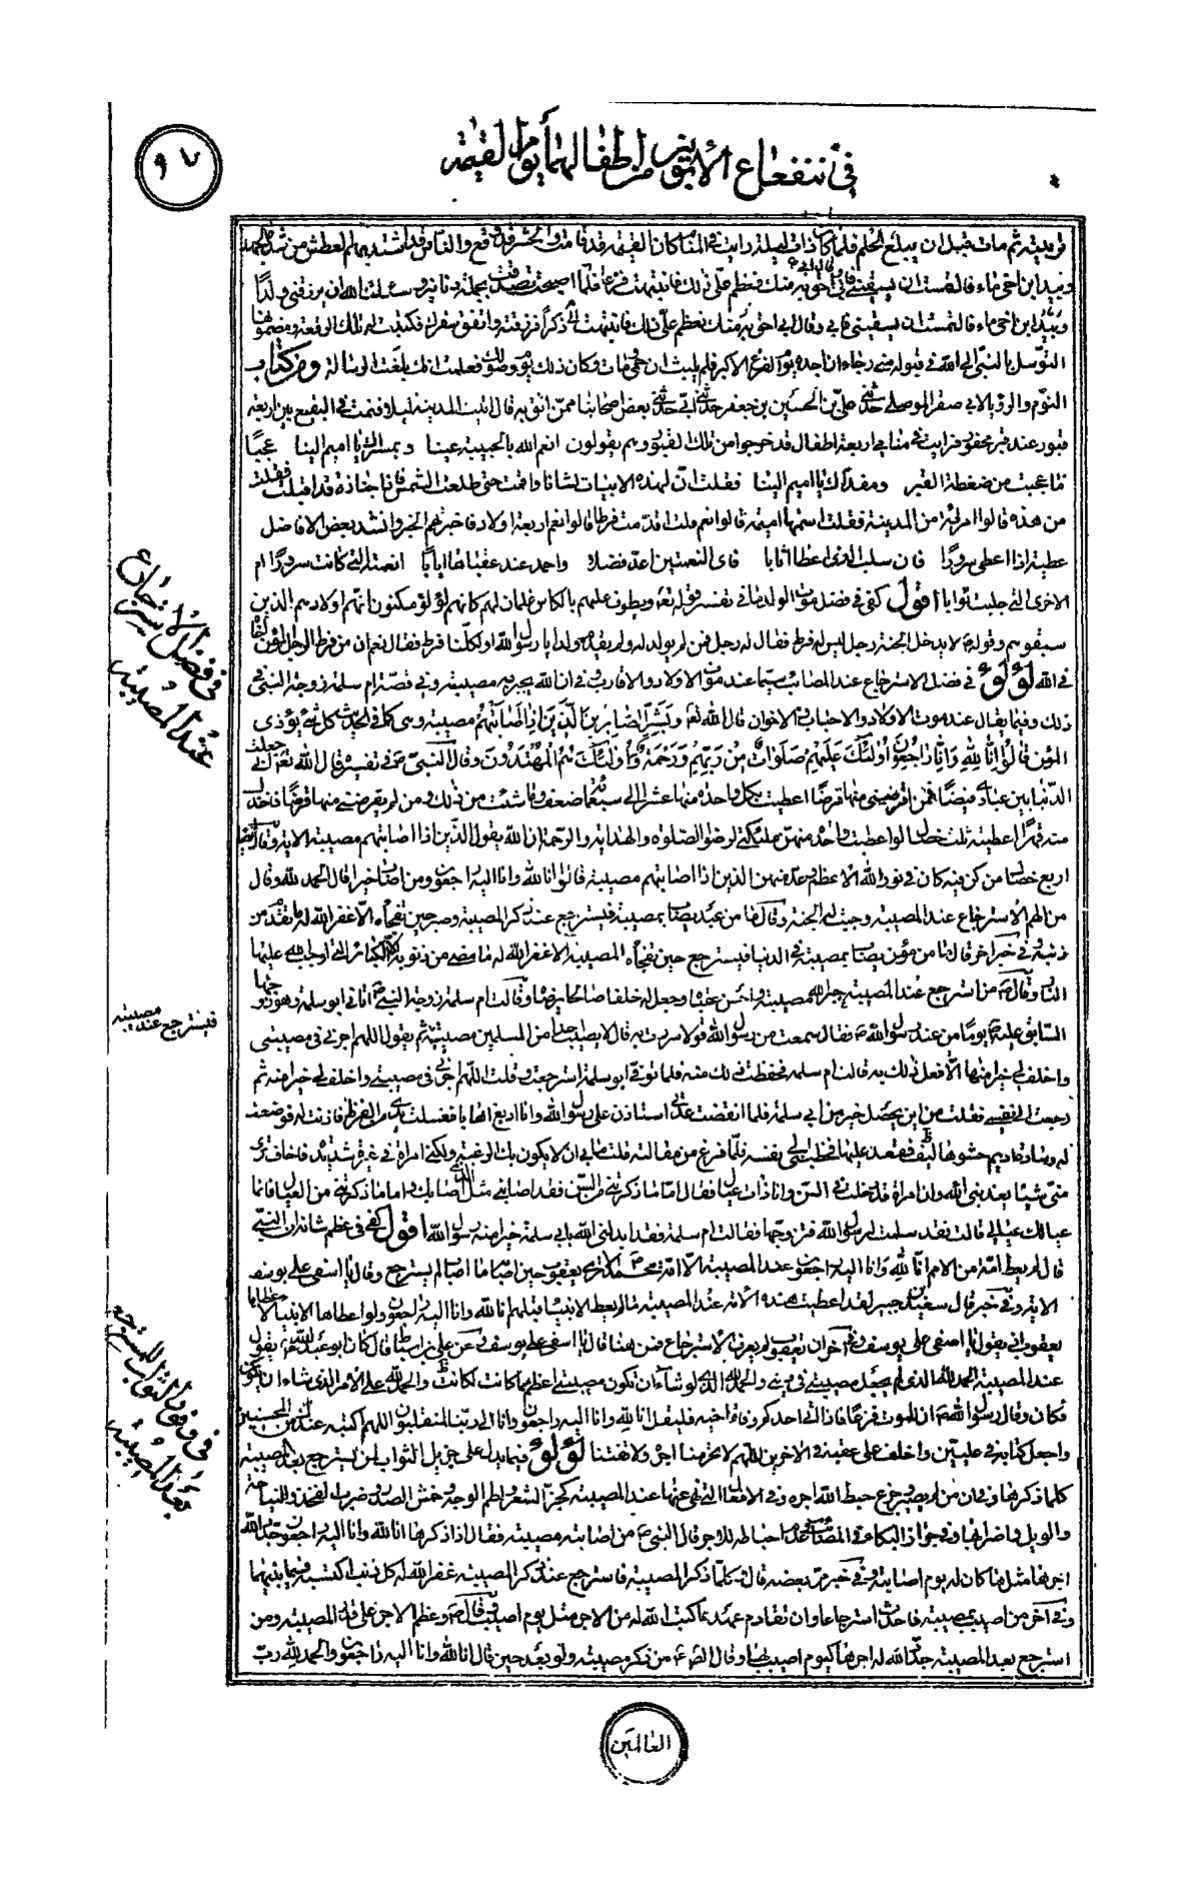 في انتفاع الأبوين من اطفالهما يوم القيمة
٩٧
قريبة ثم مات قبل ان يبلغ الحلم فلما كان ذات ليلة رايت في المنام كان القيمة قد قامت والناس قد اشتد بهم العطش من شدة الجهد
وبيد ابن اخي ماء فالتمست ان يسقيني فابى
وبيد ابن اخي ماء فالتمست ان يسقيني فابى وقال ابى احق به منك فعظم علي ذلك فانتبهت
التوسل بالنبي الى الله في قبوله مني رجاء ان اجده يوم الفزع الاكبر فلم يلبث ان حم ومات وكان ذلك يوم وصولك فعلمت انك بلغت الرسالة ومن كتاب
النوم والرؤيا لابي صقر الموصلي حدثني علي بن الحسين بن جعفر حدثني ابي حدثني بعض اصحابنا ممن اثق به قال اتيت المدينة ليلا فنمت في البقيع بين اربعة
قبور عند قبر محفور فرايت في منامي اربعة اطفال قد خرجوا من تلك القبور وهم يقولون انعم الله بالحبيبة عينا وبمسراك يا اميم الينا عجبا
ما عجبت من ضغطة القبر ومغداك يا اميم الينا فقلت ان لهذه الابيات لشانا واقمت حتى طلعت الشمس فاذا جنازة قد اقبلت فقلت
من هذه قالوا امرأة من المدينة فقلت اسمها اميمة قالوا نعم قلت اقدمت فرطا قالوا نعم اربعة اولاد فاخبرتهم الخبر وانشد بعض الافاضل
عطيته اذا اعطى سرورا فان سلب الذي اعطى اثابا فاى النعمتين اعد فضلا واحمد عند عقباها ايابا انعمته التي كانت سرورا ام
الاخرى التي جلبت ثوابا اقول كفى في فضل موت الولد ما في تفسير قوله تعالى ويطوف عليهم بالكاس غلمان لهم كانهم لؤلؤ مكنون انهم اولادهم الذين
سبقوهم وقوله لا يدخل الجنة رجل ليس له فرط فقال له رجل فمن لم يولد له ولم يقدم ولدا يا رسول الله او لكلنا فرط فقال نعم ان من فرط الرجل المؤمن اخاه
في الله لؤلؤ في فضل الاسترجاع عند المصائب سيما عند موت الاولاد والاقارب في ان الله يجبر به مصيبته وفي قصة ام سلمة زوجة النبي في
ذلك وفيما يقال عند موت الاولاد والاحباب والاخوان قال الله تعالى وبشر الصابرين الذين اذا اصابتهم مصيبة وهي كما في الحديث كل شيء يؤذي
المؤمن قالوا انا لله وانا اليه راجعون اولئك عليهم صلوات من ربهم ورحمة واولئك هم المهتدون وقال النبي في تفسيره قال الله تعالى اني جعلت
الدنيا بين عبادي فيضا فمن اقرضني منها قرضا اعطيته بكل واحدة منها عشرا الى سبعمائة ضعف وما شئت من ذلك ومن لم يقرضني منها قرضا فاخذت
منه قهرا اعطيته ثلث خصال لو اعطيت واحدة منهن ملئكتي لرضوا الصلوة والهداية والرحمة ان الله يقول الذين اذا اصابتهم مصيبة الاية وقال ايضا
اربع خصال من كن فيه كان في نور الله الاعظم وعد منهن الذين اذا اصابتهم مصيبة قالوا انا لله وانا اليه راجعون ومن اصاب خيرا قال الحمد لله وقال
من الهم الاسترجاع عند المصيبة وجبت له الجنة وقال ما من عبد يصاب بمصيبة فيسترجع عند ذكر المصيبة وصبر حين تفجأه الا غفر الله له ما تقدم من
ذنبه وفي خبر اخر قال ما من مؤمن يصاب بمصيبة في الدنيا فيسترجع حين تفجأه المصيبة الا غفر الله له ما مضى من ذنوبه الا الكبائر التي اوجب الله عليها
النار وقال من استرجع عند المصيبة جبر الله مصيبته واحسن عقباه وجعل له خلفا صالحا يرضاه وقالت ام سلمة زوجة النبي اتاني ابو سلمة وهو زوجها
السابق عليه يوما من عند رسول الله فقال سمعت من رسول الله قولا سررت به قال لا يصيب احدا من المسلمين مصيبة ثم يقول اللهم اجرني في مصيبتي
واخلف لي خيرا منها الا فعل ذلك به قالت ام سلمة فحفظت ذلك منه فلما توفي ابو سلمة استرجعت وقلت اللهم اجرني في مصيبتي واخلف لي خيرا منه ثم
رجعت الى نفسي فقلت من اين يحصل خير من ابي سلمة فلما انقضت عدتي استاذن علي رسول الله وانا ادبغ اهابا فغسلت يدي من القرظ فاذنت له فوضعت
له وسادة اديم حشوها ليف فقعد عليها فخطبني الى نفسه فلما فرغ من مقالته قلت ما بي ان لا يكون بك الرغبة ولكني امرأة في غيرة شديدة فاخاف ترى
مني شيئا يعذبني الله وانا امرأة قد دخلت في السن وانا ذات عيال فقال اما ما ذكرت من السن فقد اصابني مثل الذي اصابك واما ما ذكرت من العيال فانما
عيالك عيالي قالت فقد سلمت لرسول الله فتزوجها فقالت ام سلمة فقد ابدلني الله بابي سلمة خيرا منه رسول الله اقول كفى في عظم شانه ان النبي
قال لم يعط امة من الامم انا لله وانا اليه راجعون عند المصيبة الا امة محمد الا ترى يعقوب حين اصابه ما اصاب لم يسترجع وقال يا اسفى على يوسف
الاية وفي خبر قال سعيد بن جبير لقد اعطيت هذه الامة عند المصيبة ما لم يعط الانبيا قبلهم انا لله وانا اليه راجعون ولو اعطاها الانبيا لاعطاها
يعقوب اذ يقول يا اسفى على يوسف وفي اخر ان يعقوب لم يعرف الاسترجاع فمن هنا قال يا اسفى على يوسف وعن علي بن اسباط قال كان ابو عبد الله يقول
عند المصيبة الحمد لله الذي لم يجعل مصيبتي في ديني والحمد لله الذي لو شاء ان تكون مصيبتي اعظم مما كانت لكانت والحمد لله على الامر الذي شاء ان يكون
فكان وقال رسول الله ان الموت فزعا فاذا اتى احدكم وفاة اخيه فليقل انا لله وانا اليه راجعون وانا الى ربنا لمنقلبون اللهم اكتبه عندك من المحسنين
واجعل كتابه في عليين واخلف على عقبه في الاخرين اللهم لا تحرمنا اجره ولا تفتنا لؤلؤ فيما يدل على جزيل الثواب لمن يسترجع بعد المصيبة
كلما ذكرها وفي ان من لم يصبر وجزع حبط الله اجره وفي الافعال التي نهي عنها عند المصيبة كجز الشعر ولطم الوجه وخمش الصدر وضرب الفخذ والنياحة
والويل وما ضاهاها وفي جواز البكاء في المصائب وعدم احباطه للاجر قال النبي من اصابته مصيبة فقال اذا ذكرها انا لله وانا اليه راجعون جدد الله
اجرها مثل ما كان له يوم اصابته وفي خبر مر بعضه قال وكلما ذكر المصيبة فاسترجع عند ذكر المصيبة غفر الله له كل ذنب اكتسبه فيما بينهما
وفي اخر من اصيب بمصيبة فاحدث استرجاعا وان تقادم عهدها كتب الله له من الاجر مثل يوم اصيب وقال وعظم الاجر على قدر المصيبة ومن
استرجع بعد المصيبة جدد الله له اجرها كيوم اصيب بها وقال من ذكر مصيبته ولو بعد حين قال انا لله وانا اليه راجعون والحمد لله رب
العالمين
في فضل الاسترجاع
عند المصيبة
فيسترجع عند مصيبته
في وفور الثواب للمسترجع
بعد المصيبة